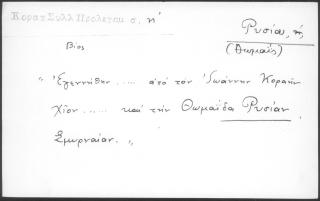 Κοραῆ Συλλ Προλεγομ σ. η'
Ρυσίαν, ἡ
(Θωμαΐς)
Βίος
" Ἐγεννήθην ..... ἀπὸ τὸν Ἰωάννην Κοραῆν
Χῖον ...... καὶ τὴν Θωμαΐδα Ρυσίαν
Σμυρναίαν. "